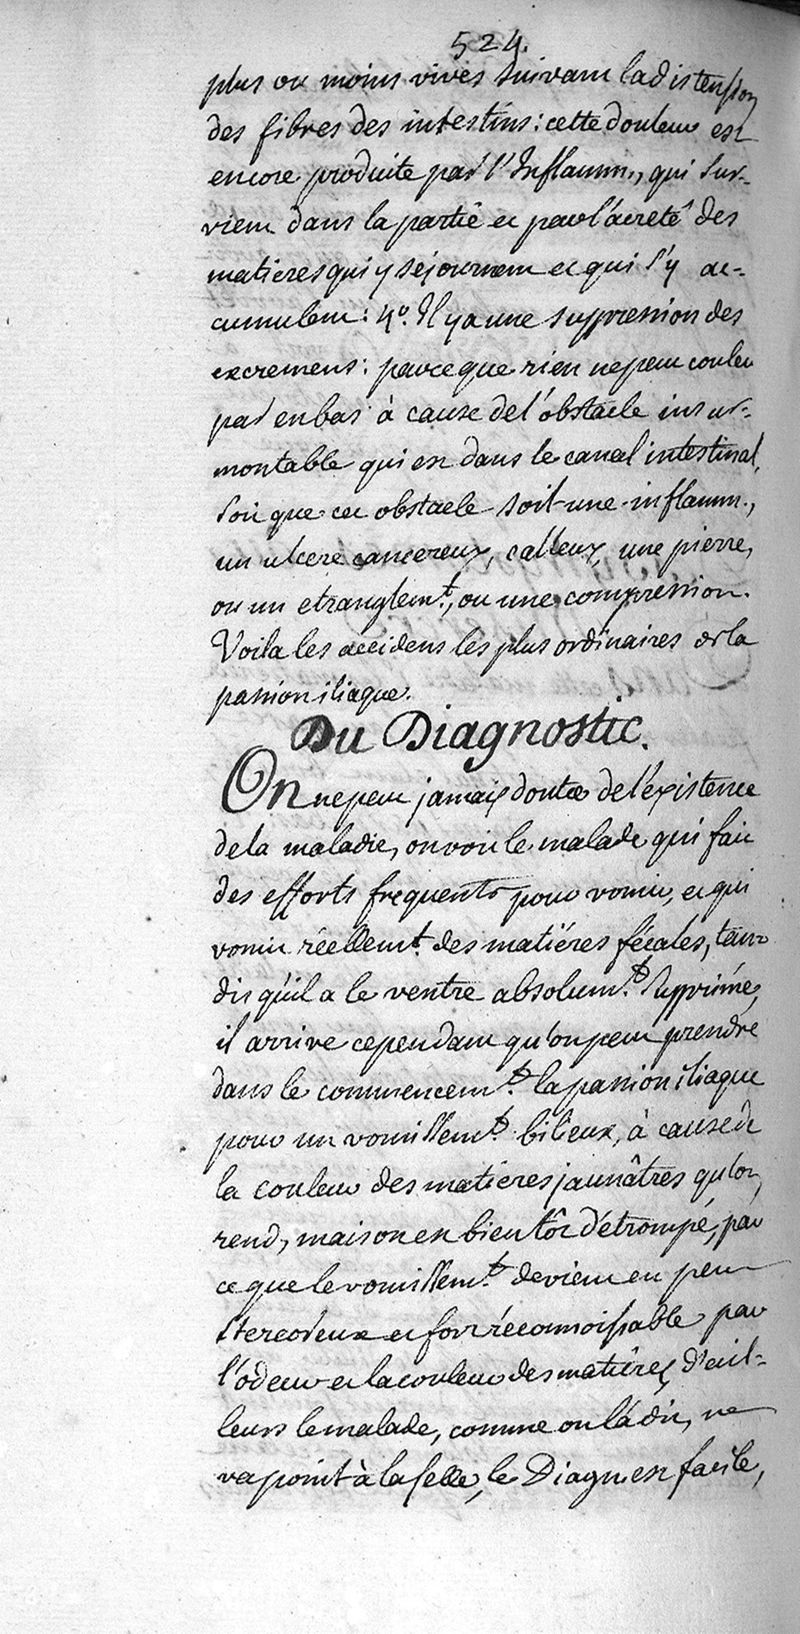 524.
plus ou moins vives suivant la distension
des fibres des intestins: cette douleur est
encore produite par l'Inflamm., qui sur-
vient dans la partië et par l'acreté des
matieres qui y séjournent et qui s'y ac-
cumulent: 4º. Il y a une suppression des
excremens: parce que rien ne peut couler
par en bas à cause de l'obstacle insur-
montable qui est dans le canal intestinal,
soit que cet obstacle soit une inflamm.,
un ulcere cancereux, calleux, une pierre,
ou un etranglemt., ou une compression.
Voila les accidens les plus ordinaires de la
passion iliaque.
Du Diagnostic.
On ne peut jamais douter de l'éxistence
de la maladie, on voit le malade qui fait
des efforts frequents pour vomir, et qui
vomit réellemt. des matiéres fécales, tan-
dis qu'il a le ventre absolumt. supprimé,
il arrive cependant qu'on peut prendre
dans le commencemt. la passion iliaque
pour un vomissemt. bilieux, à cause de
la couleur des matieres jaunâtres qu'on
rend, mais on est bientôt détrompé, par
ce que le vomissemt. devient en peu
stercoreux et fort réconnoissable par
l'odeur et la couleur des matiéres, d'ail-
leurs le malade, comme on l'a dit, ne
va point à la selle, le Diagn. est facile,